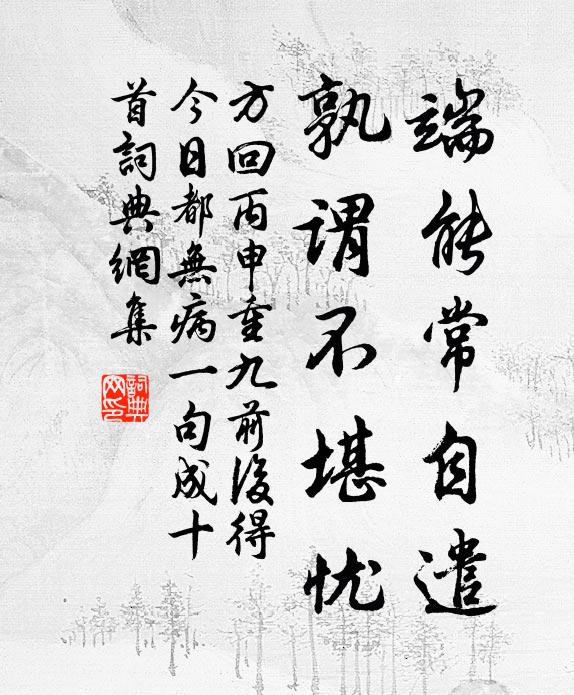 端能常自遣
孰谓不堪忧
方回丙申重九前后得
今日都無病一句成十
首詞典網集
詞典
网印